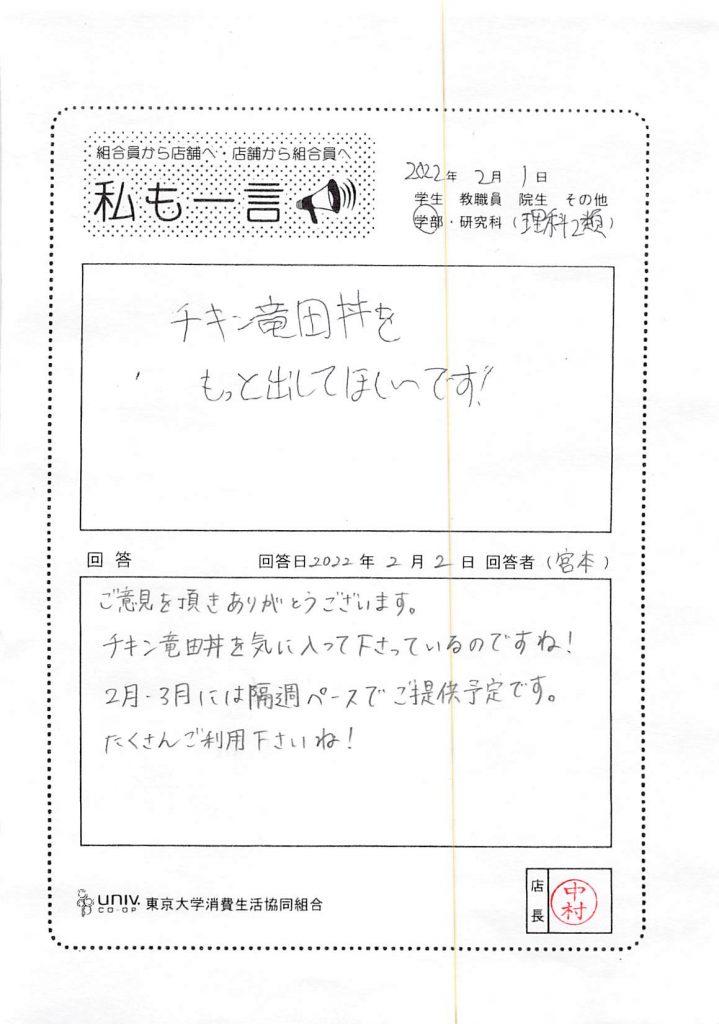 組合員から店舗へ・店舗から組合員へ
私も一言
2022年 2月 1日
学生 教職員 院生 その他
学部・研究科(理科2類)
チキン竜田丼を
もっと出してほしいです!
回答
回答日2022年 2月 2日 回答者(宮本)
ご意見を頂きありがとうございます。
チキン竜田丼を気に入って下さっているのですね!
2月・3月には隔週ペースでご提供予定です。
たくさんご利用下さいね!
UNIV. CO-OP 東京大学消費生活協同組合
店長 中村